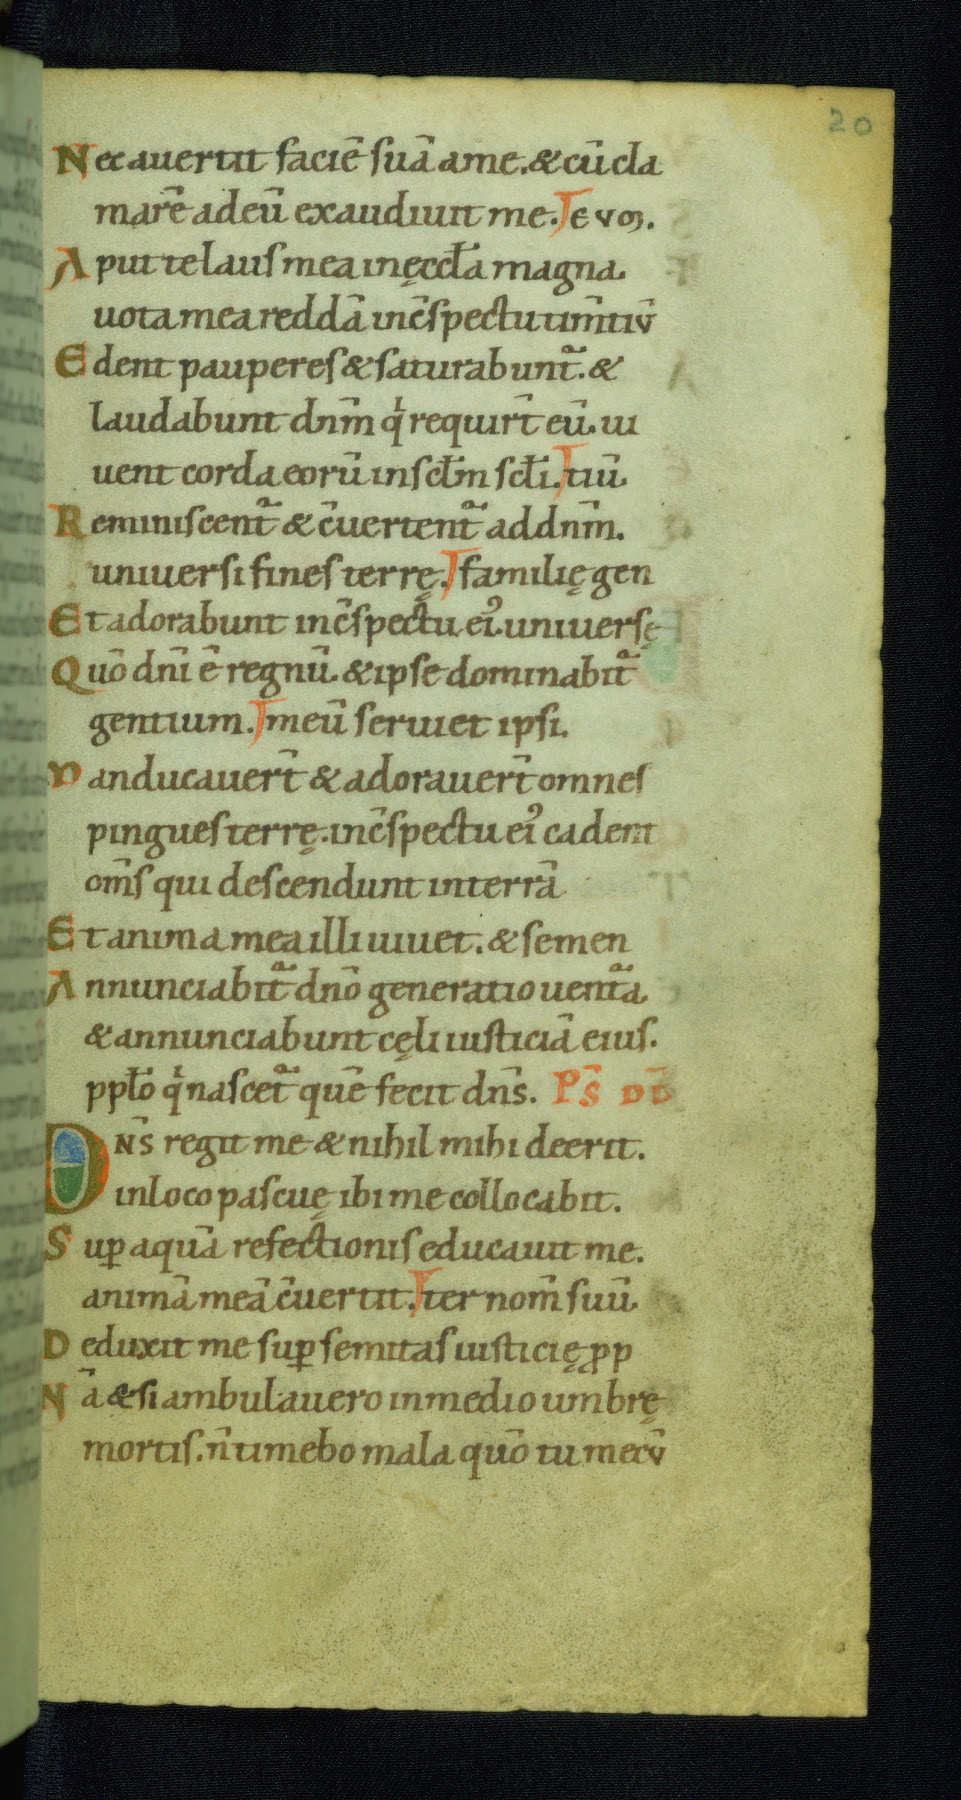 20
Nec auertit faciē suā a me. & cū cla
marē ad eū exaudiuit me. e vꝫ.
Aput te laus mea in ęccl̄a magna.
uota mea reddā inc̄spectu tim̄tiv̄
Edent pauperes & saturabuntᷓ. &
laudabunt dnm̄ qͥ requirt̄ eū. ui
uent corda eorū in scl̄m scl̄i. tiū
Reminiscentᷓ & c̄uertentᷓ ad dnm̄.
uniuersi fines terrę. familię gen
Et adorabunt inc̄spectu eiꝰ uniuersę
Quō dnī ē regnū. & ipse dominabitᷓ
gentium. meū seruiet ipsi.
Manducauert̄ & adorauert̄ omnes
pingues terrę. inc̄spectu eiꝰ cadent
om̄s qui descendunt in terrā
Et anima mea illi uiuet. & semen
Annunciabitᷓ dnō generatio uentᷓa
& annunciabunt cęli iusticiā eius.
ppl̄o qͥ nascetᷓ quē fecit dn̄s. Ps̄ DD̄
DN̄S regit me & nihil mihi deerit.
in loco pascuę ibi me collocabit.
Suꝑ aquā refectionis educauit me.
animā meā c̄uertit. ter nom̄ suū
Deduxit me suꝑ semitas iusticię ꝓp
Nā & si ambulauero in medio umbrę
mortis. n̄ timebo mala quō tu mecv̄